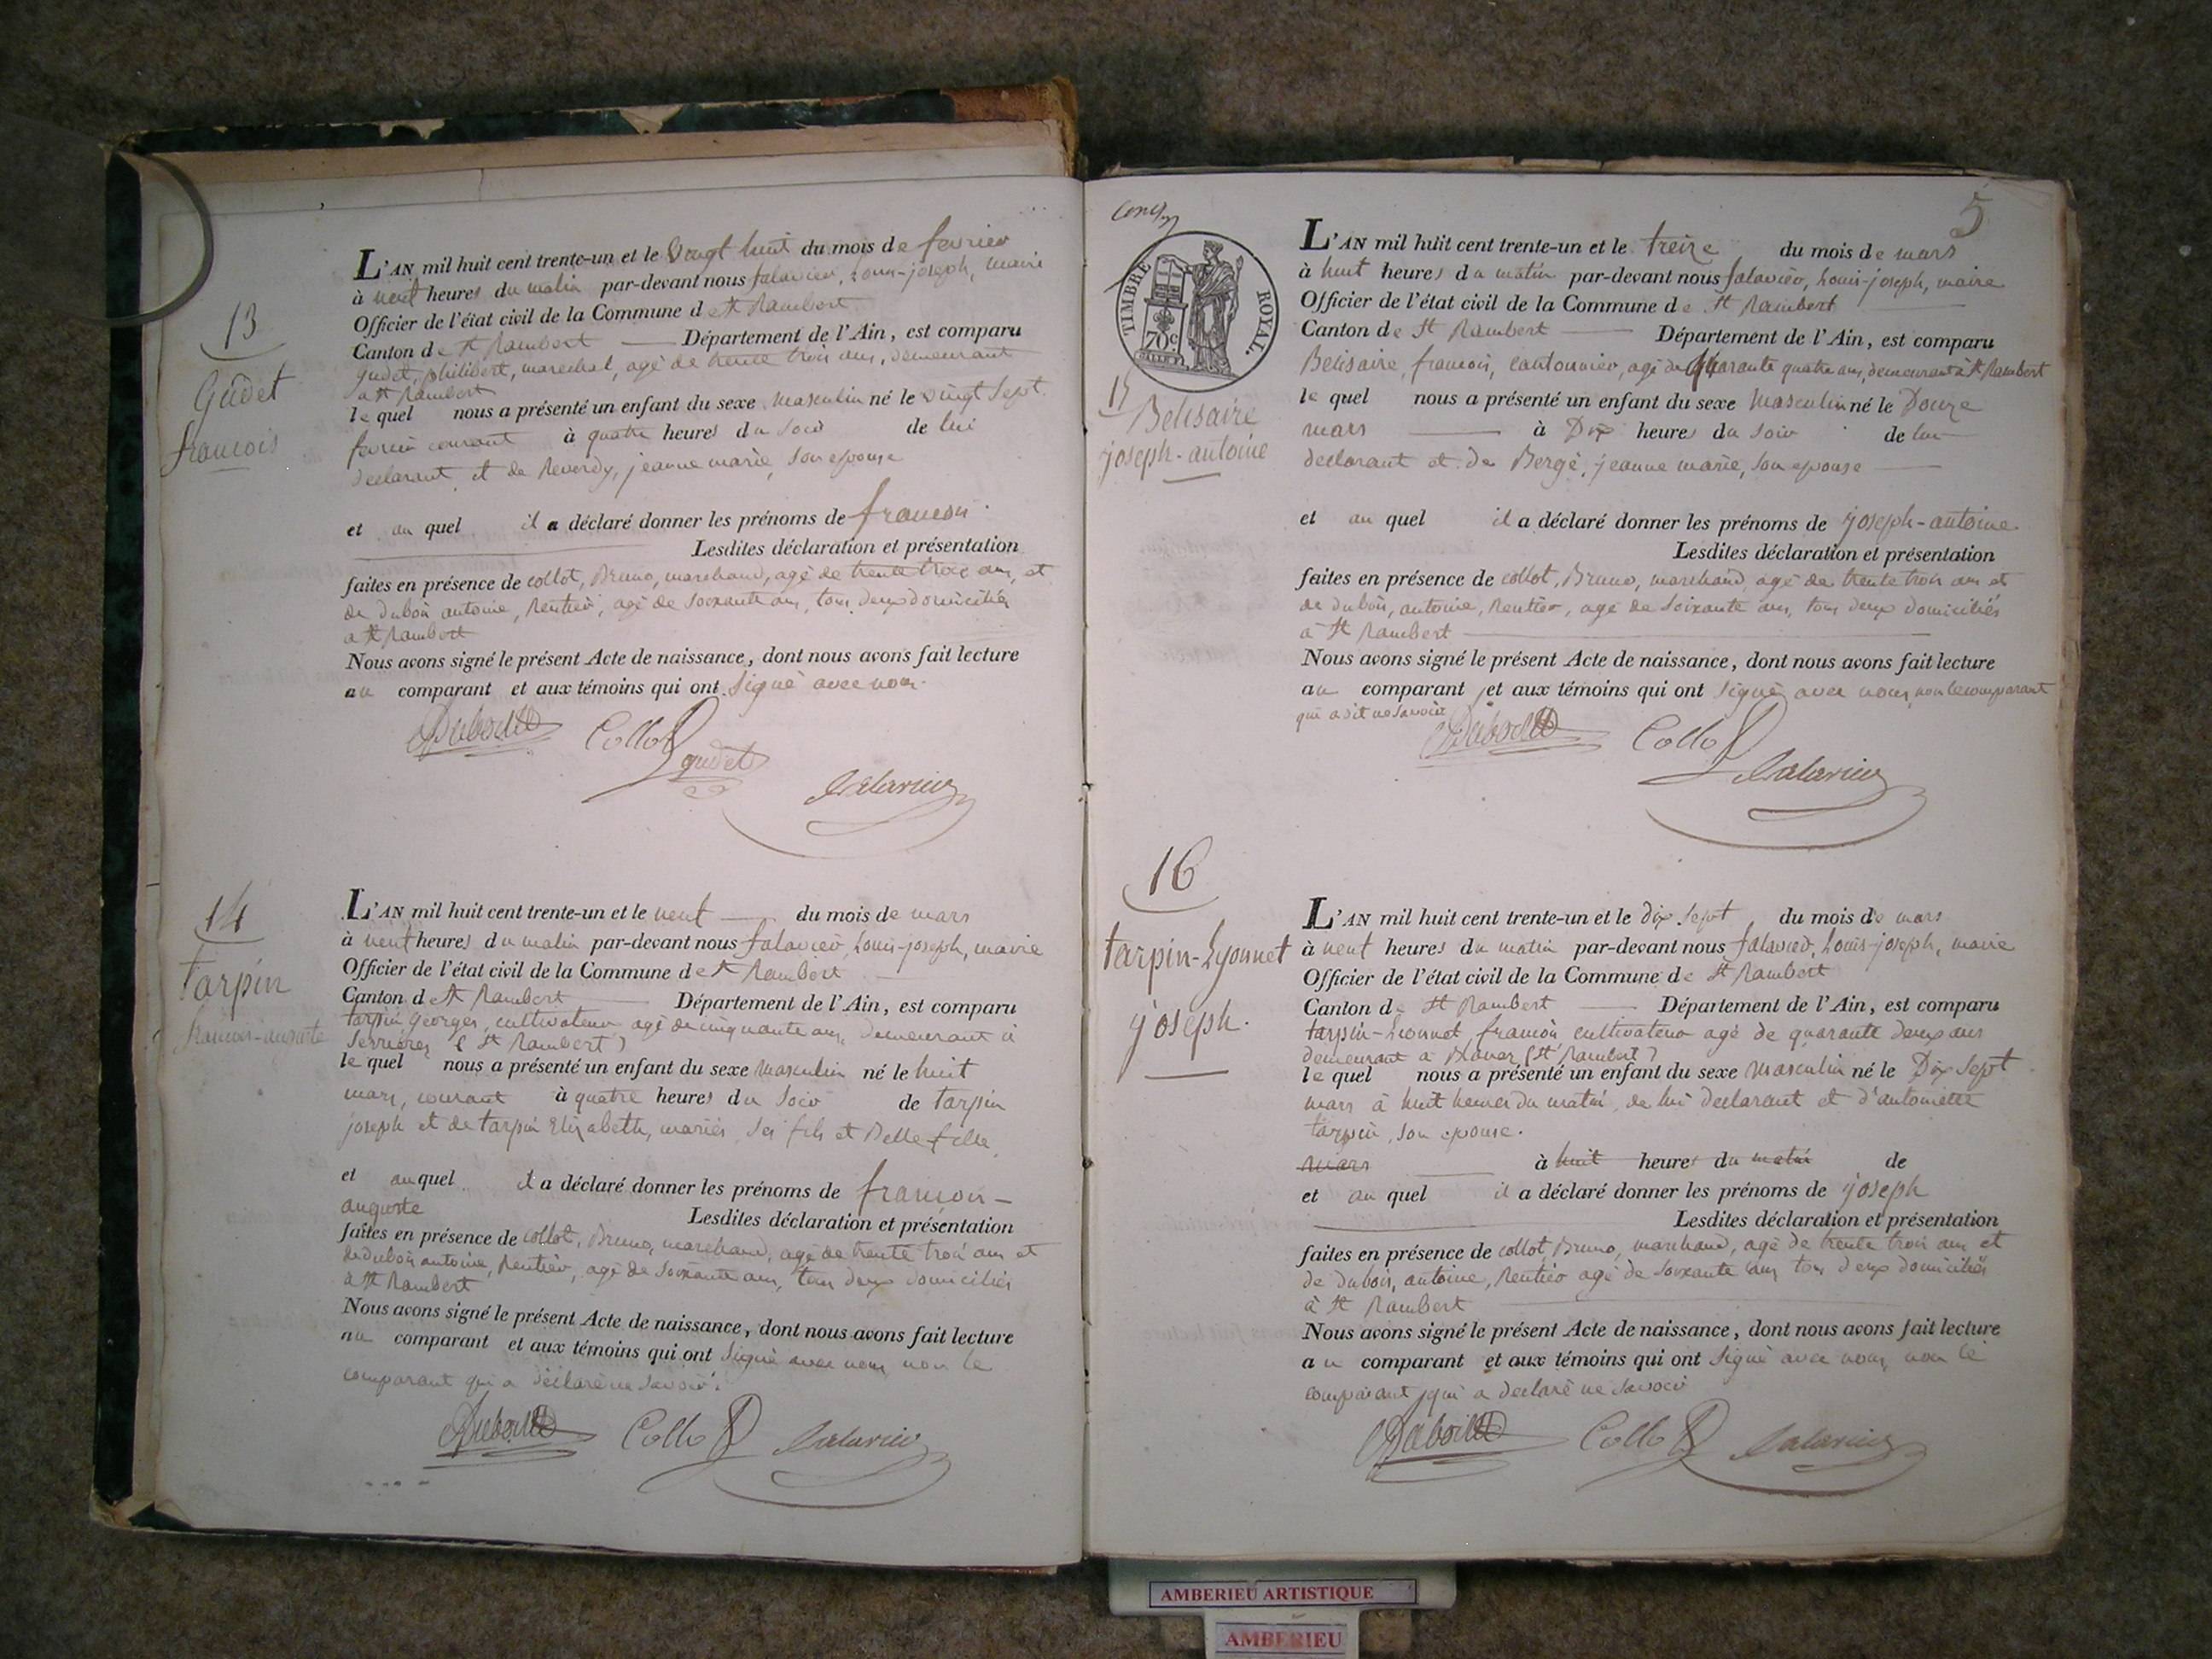 13
Gudet
francois
L'AN mil huit cent trente-un et le vingt huit du mois de fevrier
à neuf heures du matin par-devant nous falavier, Louis-joseph, maire
Officier de l'état civil de la Commune de St Rambert
Canton de St Rambert Département de l'Ain, est comparu
gudet, philibert, marechal, agé de trente trois ans, demeurant
a St Rambert
le quel nous a présenté un enfant du sexe masculin né le vingt sept
fevrier courant à quatre heures du soir de lui
declarant et de Reverdy, jeanne marie, son epouse
et au quel il a déclaré donner les prénoms de francois
Lesdites déclaration et présentation
faites en présence de collot, Bruno, marchand, agé de trente trois ans, et
de dubois antoine, Rentier, agé de soixante ans, tous deux domiciliés
a St Rambert
Nous avons signé le présent Acte de naissance, dont nous avons fait lecture
au comparant et aux témoins qui ont signé avec nous.
Dubois Collot
gudet
falavier
14
Tarpin
francois-auguste
L'AN mil huit cent trente-un et le neuf du mois de mars
à neuf heures du matin par-devant nous falavier, Louis-joseph, maire
Officier de l'état civil de la Commune de St Rambert
Canton de St Rambert Département de l'Ain, est comparu
tarpin Georges, cultivateur agé de cinquante ans, demeurant à
Serrieres (St Rambert)
le quel nous a présenté un enfant du sexe masculin né le huit
mars, courant à quatre heures du soir de tarpin
joseph et de tarpin Elizabeth, mariés, ses fils et Belle fille
et au quel il a déclaré donner les prénoms de françois-
auguste Lesdites déclaration et présentation
faites en présence de collot, Bruno, marchand, agé de trente trois ans et
de dubois antoine, Rentier, agé de soixante ans, tous deux domiciliés
a St Rambert
Nous avons signé le présent Acte de naissance, dont nous avons fait lecture
au comparant et aux témoins qui ont signé avec nous non le
comparant qui a déclaré ne savoir.
Dubois Collot falavier
5
TIMBRE ROYAL.
70 c.
15
Belisaire
joseph-antoine
L'AN mil huit cent trente-un et le treize du mois de mars
à huit heures du matin par-devant nous falavier, Louis-joseph, maire
Officier de l'état civil de la Commune de St Rambert
Canton de St Rambert Département de l'Ain, est comparu
Belisaire, francois, cantonnier, agé de quarante quatre ans, demeurant à St Rambert
le quel nous a présenté un enfant du sexe masculin né le Douze
mars à Dix heures du soir de lui
declarant et de Bergé, jeanne marie, son epouse
et au quel il a déclaré donner les prénoms de joseph-antoine
Lesdites déclaration et présentation
faites en présence de collot, Bruno, marchand, agé de trente trois ans et
de dubois, antoine, Rentier, agé de soixante ans, tous deux domiciliés
à St Rambert
Nous avons signé le présent Acte de naissance, dont nous avons fait lecture
au comparant et aux témoins qui ont signé avec nous non le comparant
qui a dit ne savoir
Dubois Collot
falavier
16
tarpin-Lyonnet
joseph.
L'AN mil huit cent trente-un et le dix sept du mois de mars
à neuf heures du matin par-devant nous falavier, Louis-joseph, maire
Officier de l'état civil de la Commune de St Rambert
Canton de St Rambert Département de l'Ain, est comparu
tarpin-Lionnet francois, cultivateur agé de quarante deux ans
demeurant a Blanaz (St Rambert)
le quel nous a présenté un enfant du sexe masculin né le Dix sept
mars à huit heures du matin, de lui declarant et d'antoinette
tarpin, son epouse.
mars à huit heures du matin de
et au quel il a déclaré donner les prénoms de joseph
Lesdites déclaration et présentation
faites en présence de collot, Bruno, marchand, agé de trente trois ans et
de dubois, antoine, Rentier agé de soixante ans tous deux domiciliés
à St Rambert
Nous avons signé le présent Acte de naissance, dont nous avons fait lecture
au comparant et aux témoins qui ont signé avec nous, non le
comparant qui a declaré ne savoir
Dubois Collot falavier
AMBERIEU ARTISTIQUE
AMBERIEU